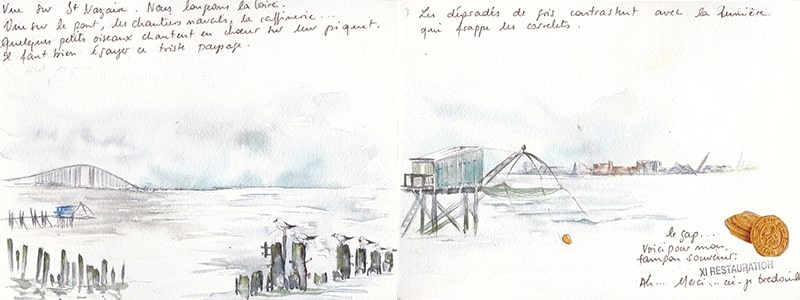 Vue sur St Nazaire. Nous longeons la Loire.
Vue sur le pont, les chantiers navals, la raffinerie...
Quelques petits oiseaux chantent en chœur sur leur piquet.
Il faut bien égayer ce triste paysage.
Les dégradés de gris contrastent avec la lumière
qui frappe les carrelets.
le gag...
Voici pour moi,
tampon souvenir.
XI RESTAURATION
Ah... Merci... ai-je bredouillé